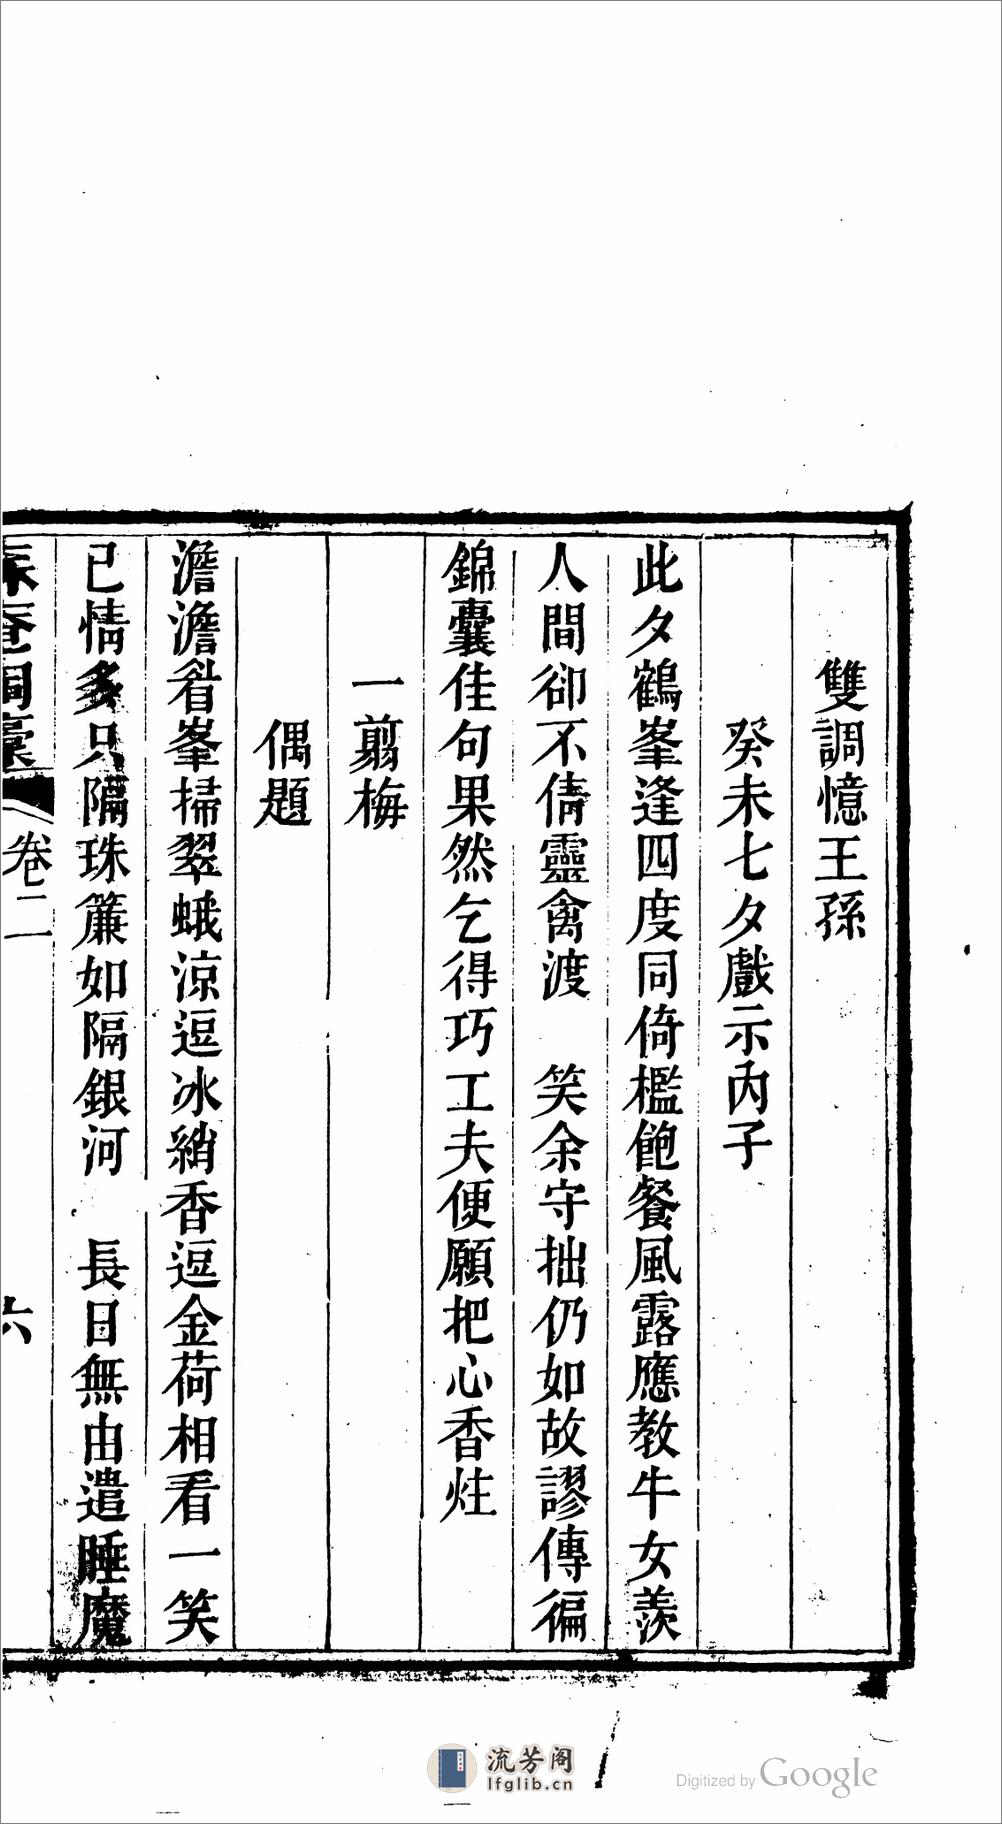 雙調憶王孫
癸未七夕戲示內子
此夕鶴峯逢四度同倚檻飽餐風露應教牛女羨
人間卻不倩靈禽渡　笑余守拙仍如故謬傳徧
錦囊佳句果然乞得巧工夫便願把心香炷
一翦梅
偶題
澹澹眉峯掃翠蛾涼逗冰綃香逗金荷相看一笑
已情多只隔珠簾如隔銀河　長日無由遣睡魔
卷二
六
流芳阁
lfglib.cn
Digitized by Google